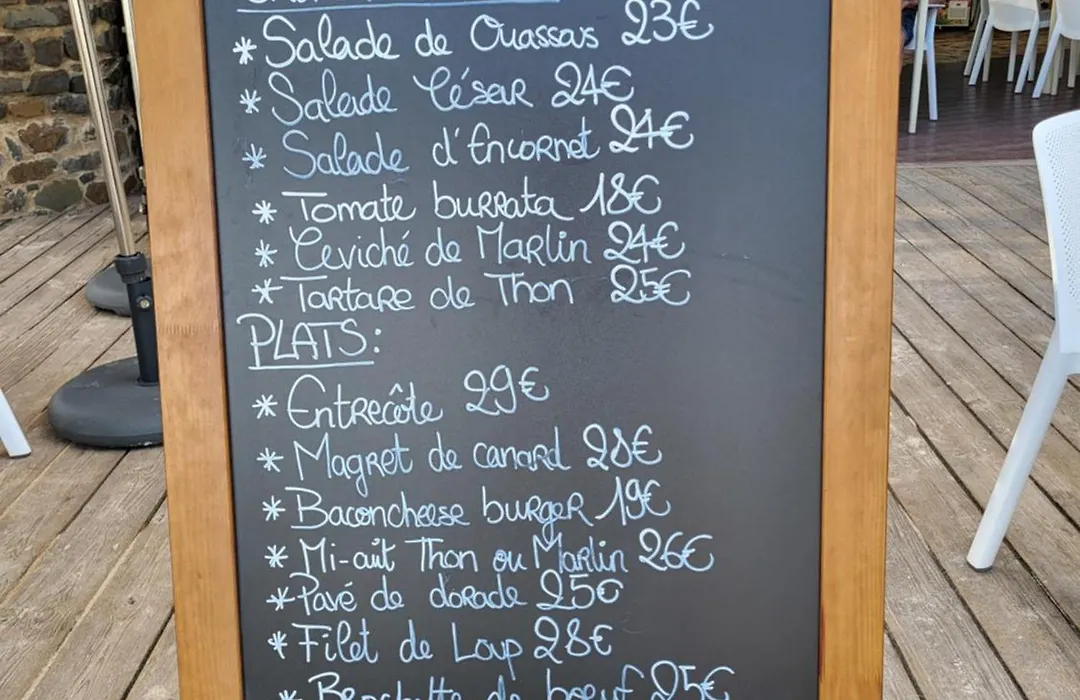 * Salade de Ouassas 23€
* Salade César 24€
* Salade d'Encornet 24€
* Tomate burrata 18€
* Ceviché de Marlin 24€
* Tartare de Thon 25€
PLATS:
* Entrecôte 29€
* Magret de canard 28€
* Baconcheese burger 19€
* Mi-cuit Thon ou Marlin 26€
* Pavé de dorade 25€
* Filet de Loup 28€
* de boeuf 25€